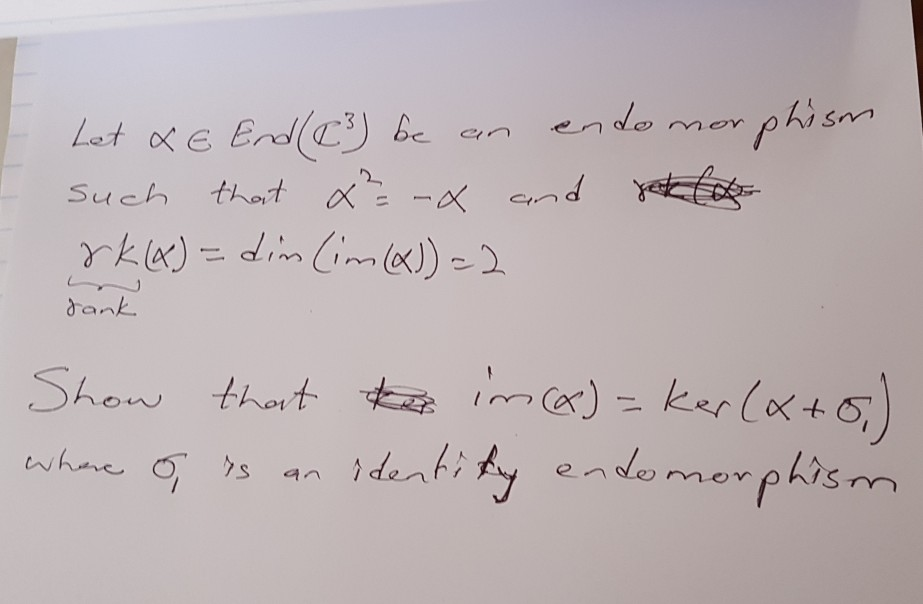 Let α ∈ End(ℂ³) be an endomorphism
such that α² = -α and
rk(α) = dim(im(α)) = 2
rank
Show that im(α) = ker(α + σ₁)
where σ₁ is an identity endomorphism